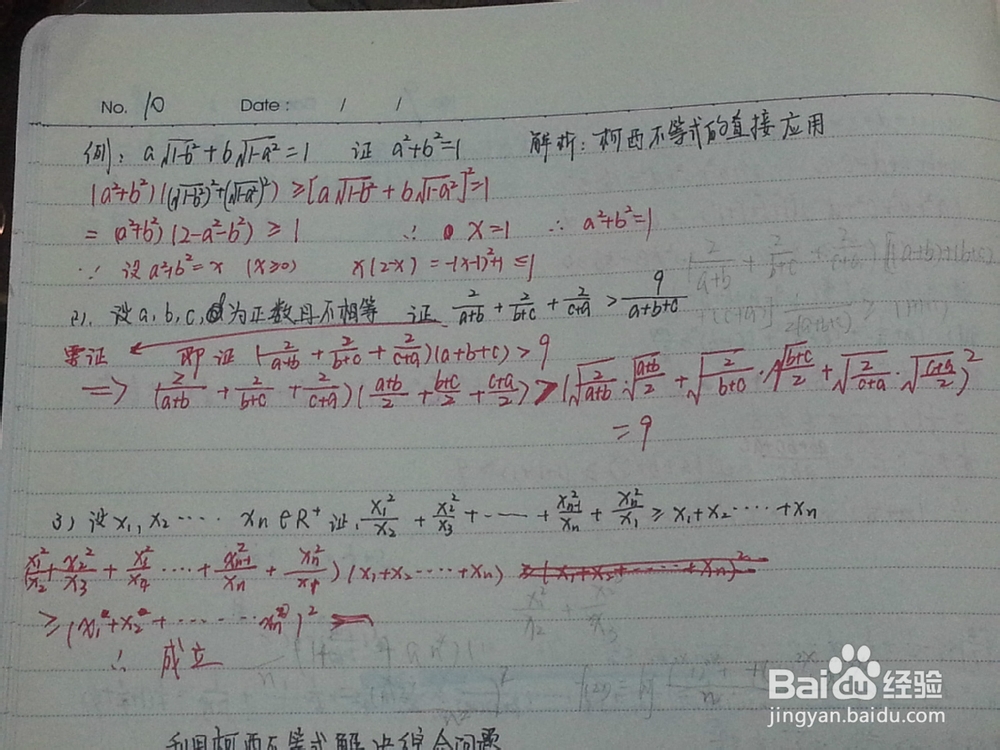 No. 10 Date: / /
例: a√(1-b²) + b√(1-a²) = 1 证 a²+b²=1 解析: 柯西不等式的直接应用
(a²+b²)((√(1-b²))²+(√(1-a²))²) ≥ [a√(1-b²) + b√(1-a²)]² = 1
= (a²+b²)(2-a²-b²) ≥ 1 ∴ x=1 ∴ a²+b²=1
∵ 设a²+b²=x (x≥0) x(2-x) = -(x-1)²+1 ≤1
(2). 设a,b,c,为正数且不相等 证 2/(a+b) + 2/(b+c) + 2/(c+a) > 9/(a+b+c)
要证 即证 (2/(a+b) + 2/(b+c) + 2/(c+a))(a+b+c) > 9
=> (2/(a+b) + 2/(b+c) + 2/(c+a))((a+b)/2 + (b+c)/2 + (c+a)/2) > (√(2/(a+b))·√((a+b)/2) + √(2/(b+c))·√((b+c)/2) + √(2/(c+a))·√((c+a)/2))²
= 9
3) 设x₁, x₂ ····· xₙ∈R⁺ 证, x₁²/x₂ + x₂²/x₃ + ······ + xₙ₋₁²/xₙ + xₙ²/x₁ ≥ x₁+x₂ ····· +xₙ
(x₁²/x₂ + x₂²/x₃ + x₃²/x₄ ····· + xₙ₋₁²/xₙ + xₙ²/x₁)(x₁+x₂ ····· +xₙ)
≥ (x₁+x₂+ ······ xₙ)²
∴ 成立
利用柯西不等式解决综合问题
Baidu 经验
jingyan.baidu.com